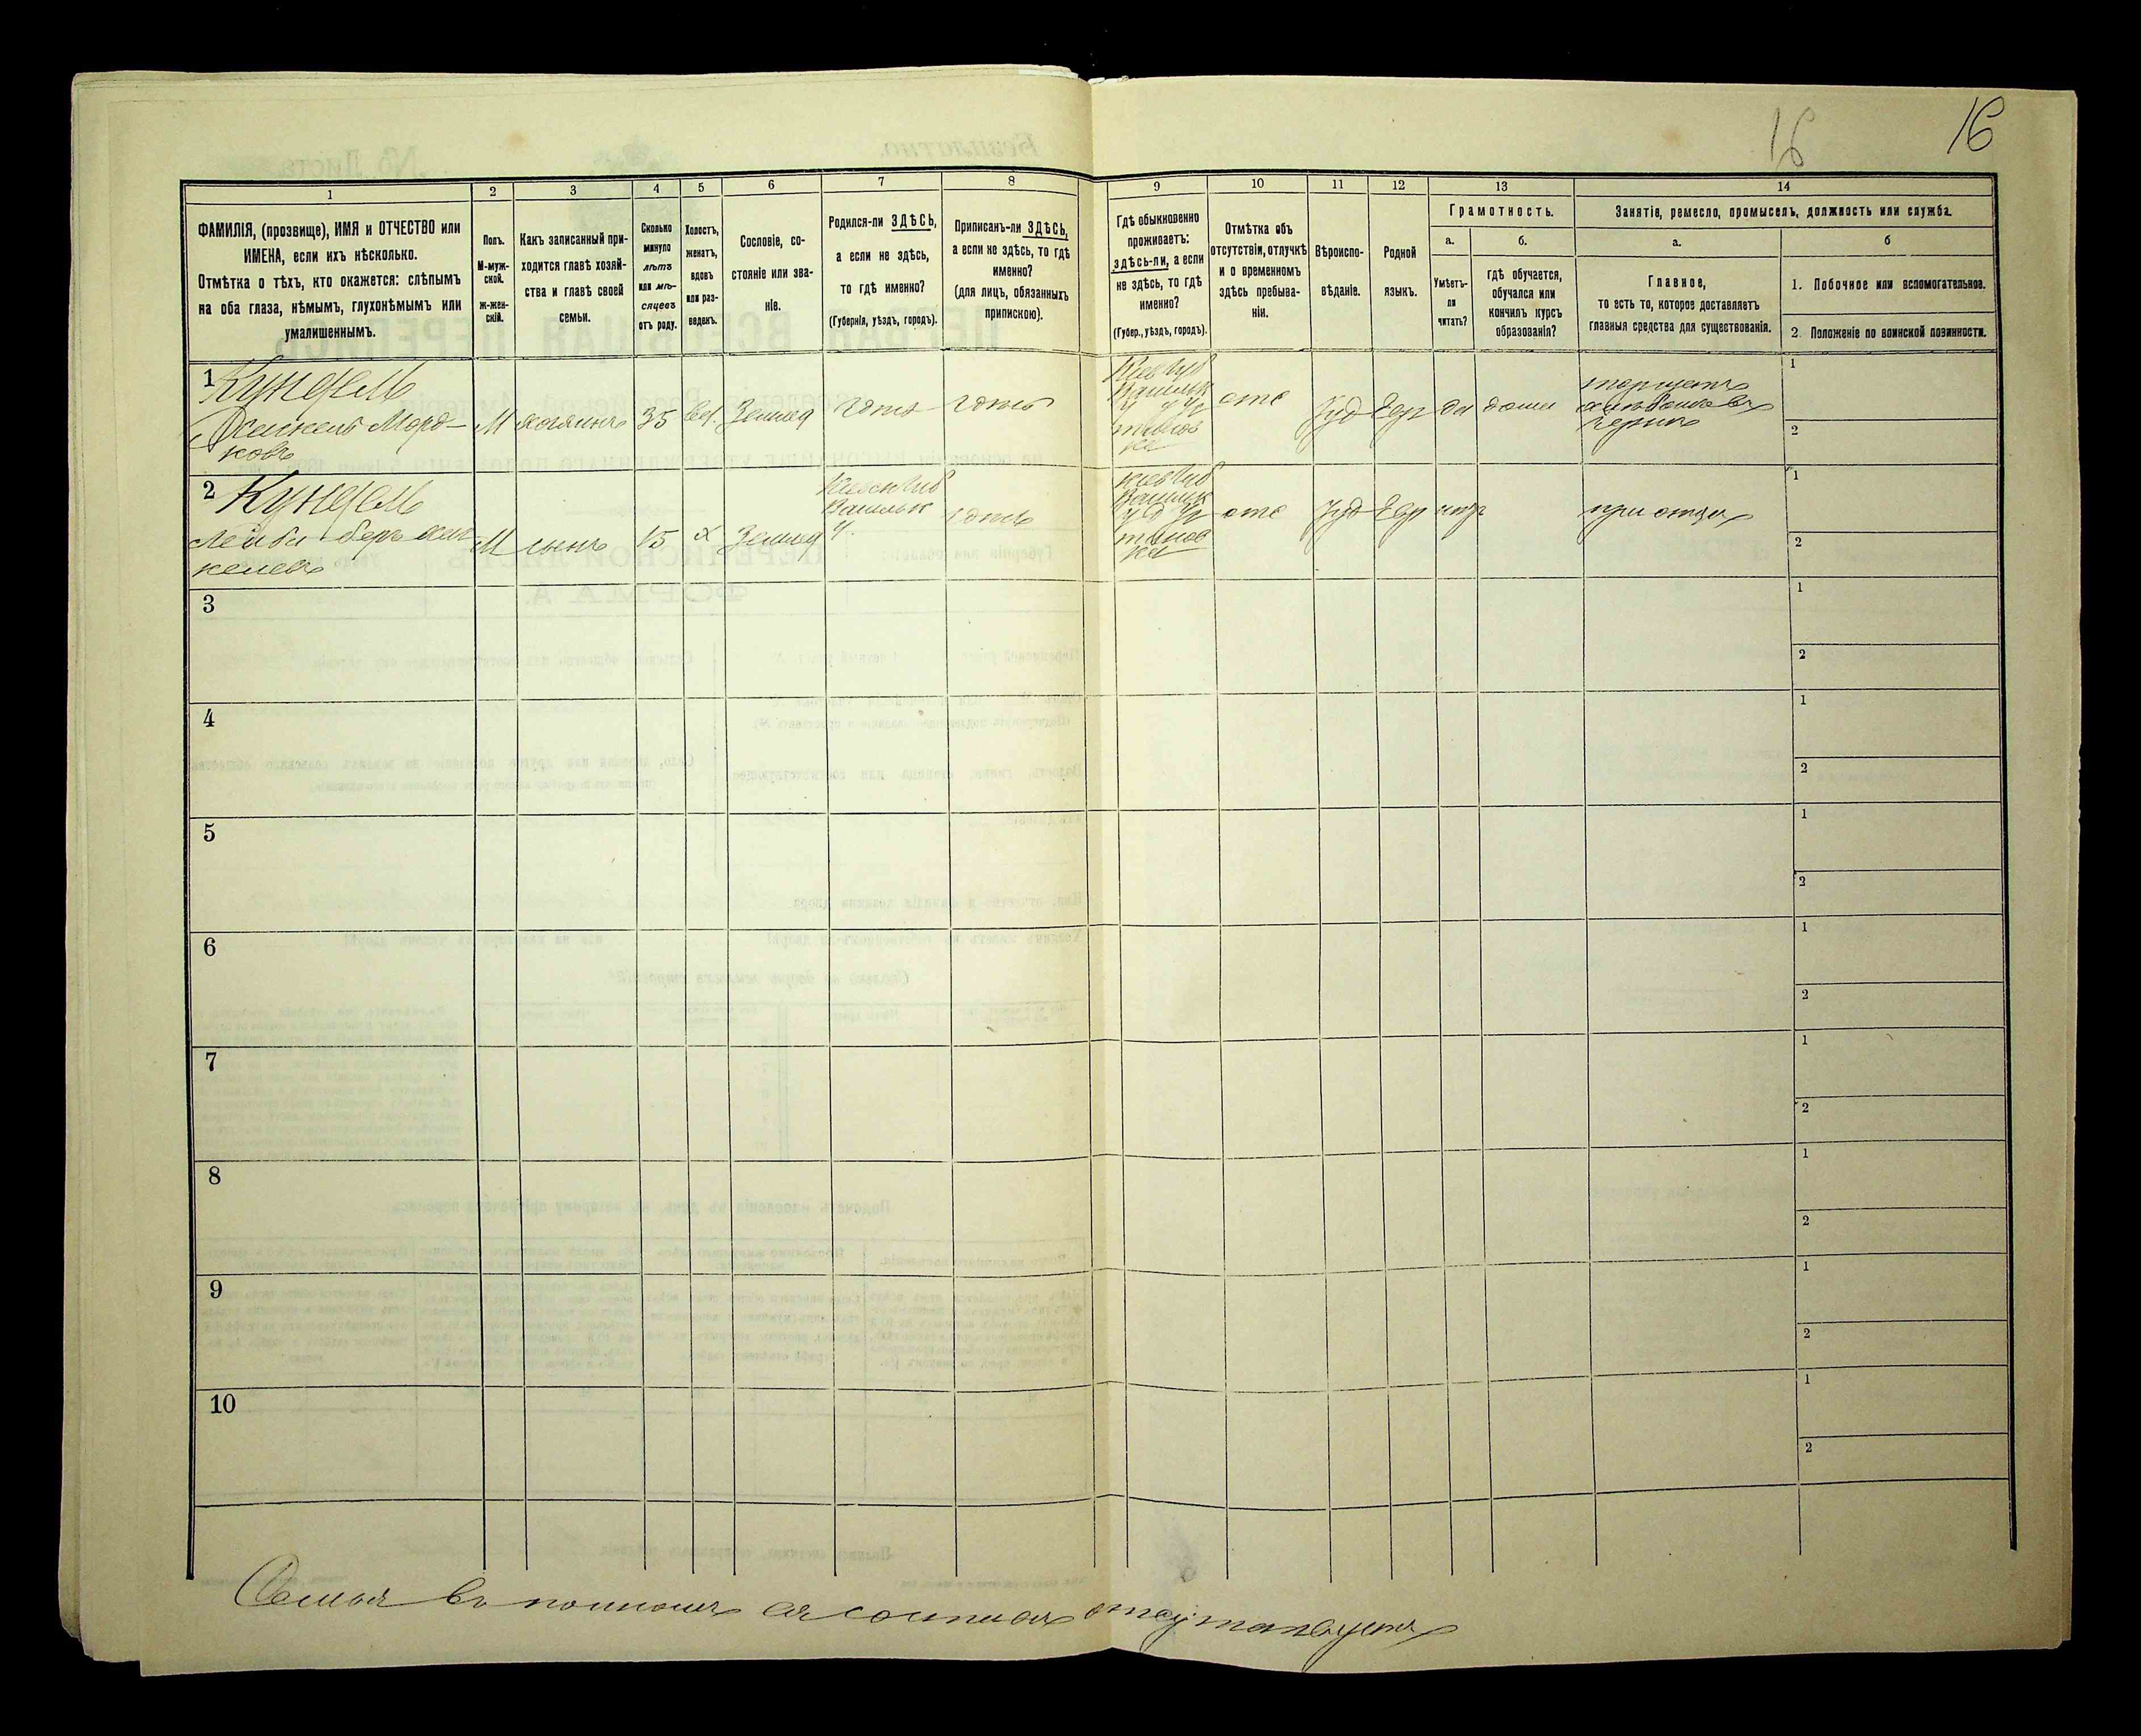 16 16
1 2 3 4 5 6 7 8 9 10 11 12 13 14
ФАМИЛІЯ, (прозвище), ИМЯ и ОТЧЕСТВО или
ИМЕНА, если ихъ нѣсколько.
Отмѣтка о тѣхъ, кто окажется: слѣпымъ
на оба глаза, нѣмымъ, глухонѣмымъ или
умалишеннымъ.
Полъ.
М-муж-
ской.
Ж-жен-
скій.
Какъ записанный при-
ходится главѣ хозяй-
ства и главѣ своей
семьи.
Сколько
минуло
лѣтъ
или мѣ-
сяцевъ
отъ роду.
Холостъ,
женатъ,
вдовъ
или раз-
веденъ.
Сословіе, со-
стояніе или зва-
ніе.
Родился-ли ЗДѢСЬ,
а если не здѣсь,
то гдѣ именно?
(Губернія, уѣздъ, городъ).
Приписанъ-ли ЗДѢСЬ,
а если не здѣсь, то гдѣ
именно?
(для лицъ, обязанныхъ
припискою).
Гдѣ обыкновенно
проживаетъ:
здѣсь-ли, а если
не здѣсь, то гдѣ
именно?
(Губер., уѣздъ, городъ).
Отмѣтка объ
отсутствіи, отлучкѣ
и о временномъ
здѣсь пребыва-
ніи.
Вѣроиспо-
вѣданіе.
Родной
языкъ.
Грамотность.
а.
Умѣетъ-
ли
читать?
б.
гдѣ обучается,
обучался или
кончилъ курсъ
образованія?
Занятіе, ремесло, промыселъ, должность или служба.
а.
Главное,
то есть то, которое доставляетъ
главныя средства для существованія.
б
1. Побочное или вспомогательное.
2. Положеніе по воинской повинности.
1
Кундель
Морд-
ковъ
М
хозяинъ
35
Землед
тотъ
Кіев Губ
Васильк
отс
Іуд
Евр
да
дома
торгуетъ
1
2
2
Кундель
Лейба-Беръ
М
сынъ
15
х
Землед
Кіевск Губ
Васильк
у.
Кіев Губ
Васильк
отс
Іуд
Евр
при отцѣ
1
2
3
1
2
4
1
2
5
1
2
6
1
2
7
1
2
8
1
2
9
1
2
10
1
2
Семья въ полномъ составѣ отсутствуетъ